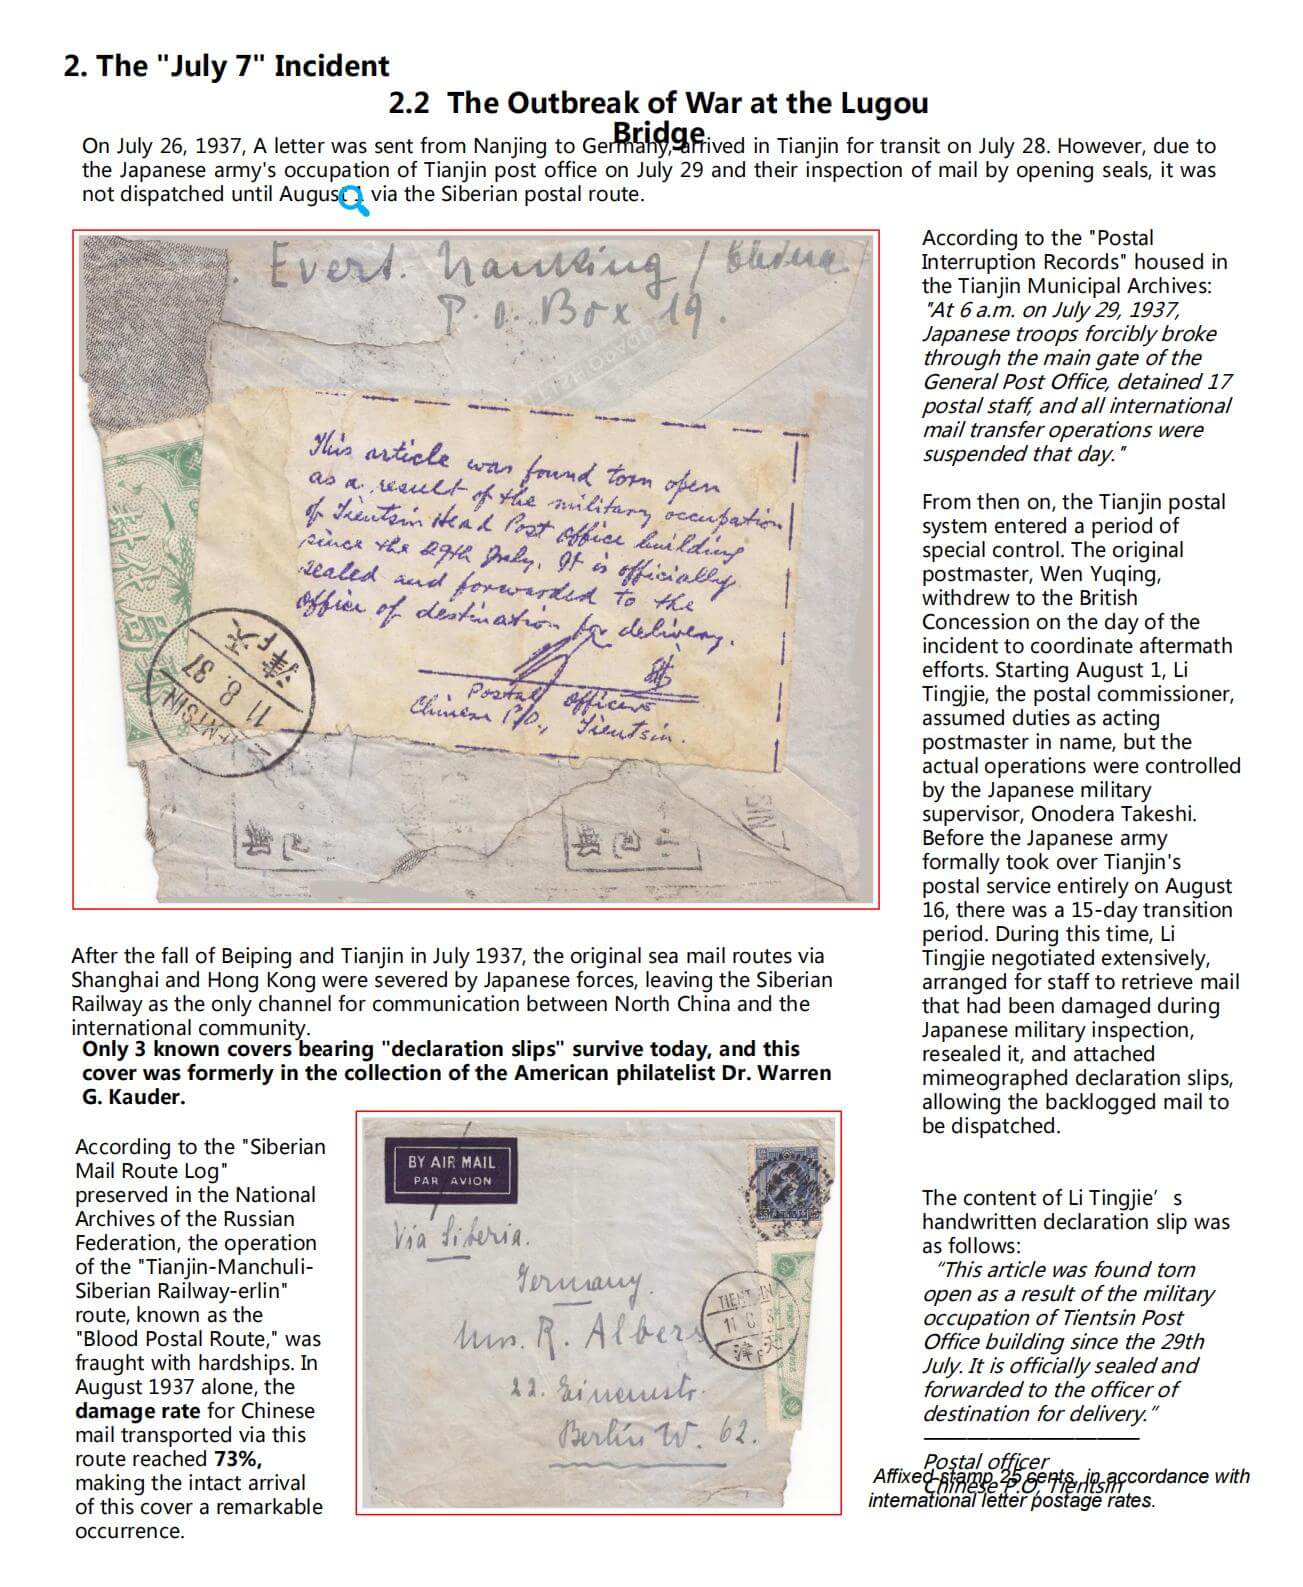 2. The "July 7" Incident
2.2 The Outbreak of War at the Lugou
Bridge
On July 26, 1937, A letter was sent from Nanjing to Germany, arrived in Tianjin for transit on July 28. However, due to
the Japanese army's occupation of Tianjin post office on July 29 and their inspection of mail by opening seals, it was
not dispatched until August 1 via the Siberian postal route.
Evert. Nanking / China
P.O. Box 19.
This article was found torn open
as a result of the military occupation
of Tientsin Head Post Office building
since the 29th July. It is officially
sealed and forwarded to the
office of destination for delivery.
Postal Officer
Chinese P.O., Tientsin.
天津
11.8.37
TIENTSIN
已
According to the "Postal
Interruption Records" housed in
the Tianjin Municipal Archives:
"At 6 a.m. on July 29, 1937,
Japanese troops forcibly broke
through the main gate of the
General Post Office, detained 17
postal staff, and all international
mail transfer operations were
suspended that day."
From then on, the Tianjin postal
system entered a period of
special control. The original
postmaster, Wen Yuqing,
withdrew to the British
Concession on the day of the
incident to coordinate aftermath
efforts. Starting August 1, Li
Tingjie, the postal commissioner,
assumed duties as acting
postmaster in name, but the
actual operations were controlled
by the Japanese military
supervisor, Onodera Takeshi.
Before the Japanese army
formally took over Tianjin's
postal service entirely on August
16, there was a 15-day transition
period. During this time, Li
Tingjie negotiated extensively,
arranged for staff to retrieve mail
that had been damaged during
Japanese military inspection,
resealed it, and attached
mimeographed declaration slips,
allowing the backlogged mail to
be dispatched.
The content of Li Tingjie’s
handwritten declaration slip was
as follows:
“This article was found torn
open as a result of the military
occupation of Tientsin Post
Office building since the 29th
July. It is officially sealed and
forwarded to the officer of
destination for delivery.”
Postal officer
Chinese P.O, Tientsin
Affixed stamp 25 cents, in accordance with
international letter postage rates.
After the fall of Beiping and Tianjin in July 1937, the original sea mail routes via
Shanghai and Hong Kong were severed by Japanese forces, leaving the Siberian
Railway as the only channel for communication between North China and the
international community.
Only 3 known covers bearing "declaration slips" survive today, and this
cover was formerly in the collection of the American philatelist Dr. Warren
G. Kauder.
According to the "Siberian
Mail Route Log"
preserved in the National
Archives of the Russian
Federation, the operation
of the "Tianjin-Manchuli-
Siberian Railway-erlin"
route, known as the
"Blood Postal Route," was
fraught with hardships. In
August 1937 alone, the
damage rate for Chinese
mail transported via this
route reached 73%,
making the intact arrival
of this cover a remarkable
occurrence.
BY AIR MAIL
PAR AVION
Via Siberia.
Germany.
R. Albers
22.
Berlin W. 62.
TIENTSIN
天津